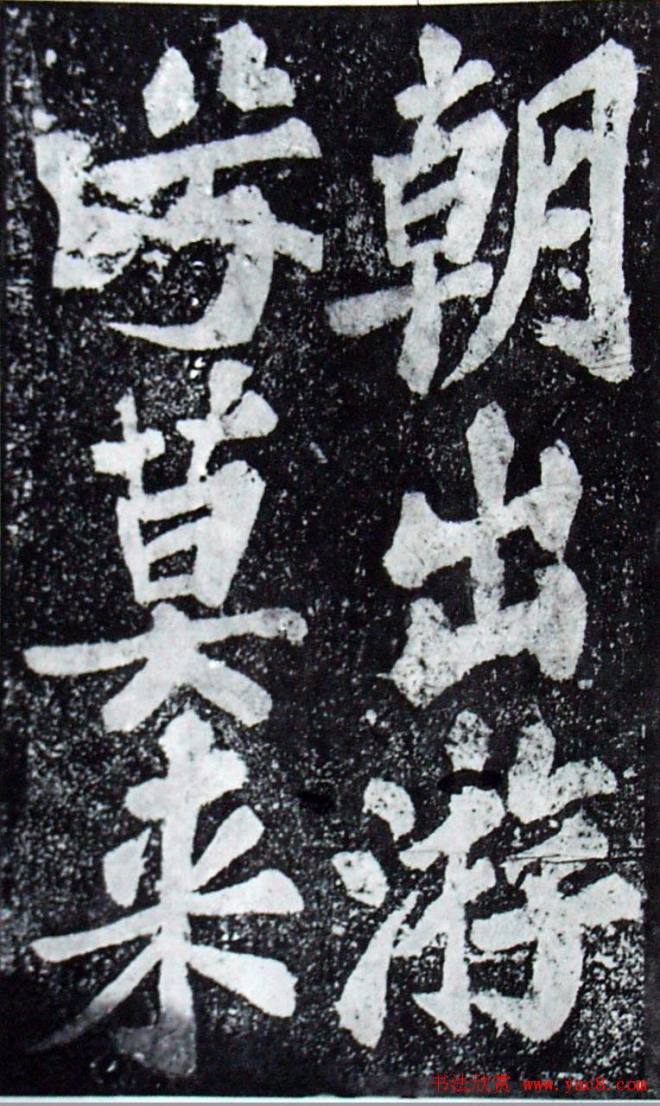 朝出游
兮莫来
书法欣赏 www.yac8.com